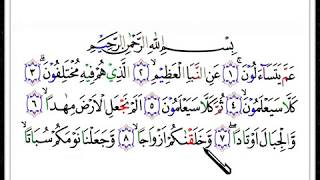 بِسْمِ اللّٰهِ الرَّحْمٰنِ الرَّحِيْمِ
عَمَّ يَتَسَاۤءَلُوْنَۚ ﴿١﴾ عَنِ النَّبَاِ الْعَظِيْمِۙ ﴿٢﴾ الَّذِيْ هُمْ فِيْهِ مُخْتَلِفُوْنَۗ ﴿٣﴾
كَلَّا سَيَعْلَمُوْنَۙ ﴿٤﴾ ثُمَّ كَلَّا سَيَعْلَمُوْنَ ﴿٥﴾ اَلَمْ نَجْعَلِ الْاَرْضَ مِهٰدًاۙ ﴿٦﴾
وَّالْجِبَالَ اَوْتَادًاۖ ﴿٧﴾ وَّخَلَقْنٰكُمْ اَزْوَاجًاۙ ﴿٨﴾ وَّجَعَلْنَا نَوْمَكُمْ سُبَاتًاۙ